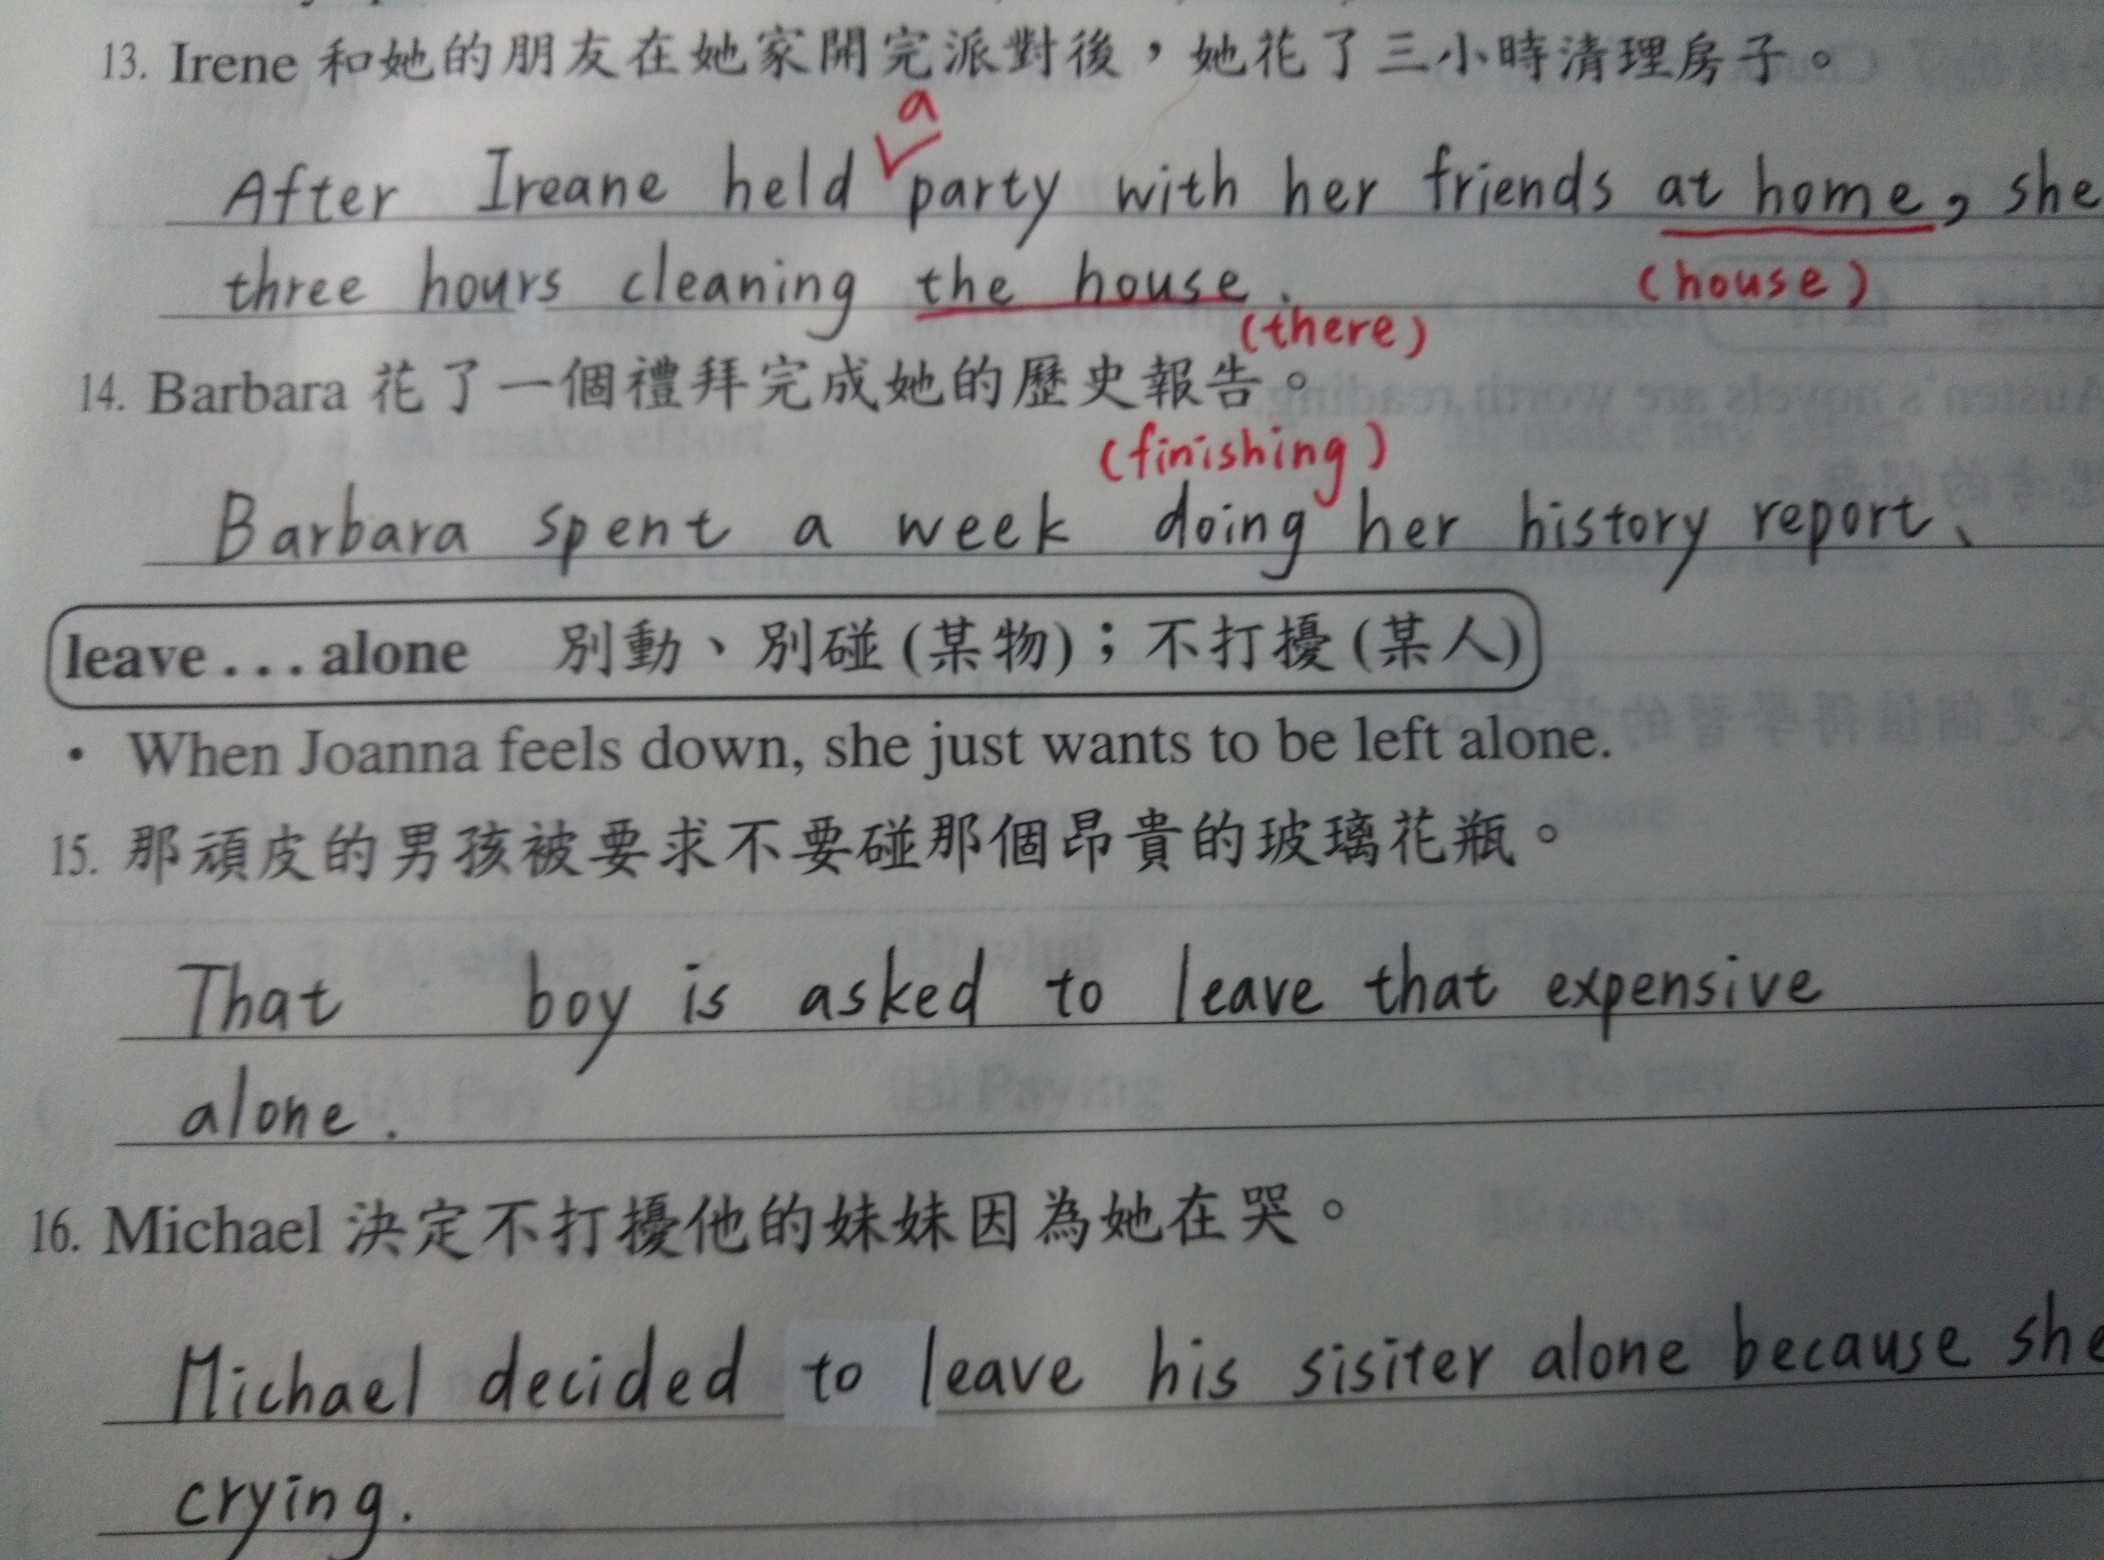 13. Irene 和她的朋友在她家開完派對後，她花了三小時清理房子。
a
After Ireane held party with her friends at home, she
three hours cleaning the house.
(house)
(there)
14. Barbara 花了一個禮拜完成她的歷史報告。
(finishing)
Barbara spent a week doing her history report、
leave . . . alone 別動、別碰 (某物)；不打擾 (某人)
• When Joanna feels down, she just wants to be left alone.
15. 那頑皮的男孩被要求不要碰那個昂貴的玻璃花瓶。
That boy is asked to leave that expensive
alone.
16. Michael 決定不打擾他的妹妹因為她在哭。
Michael decided to leave his sisiter alone because she
crying.